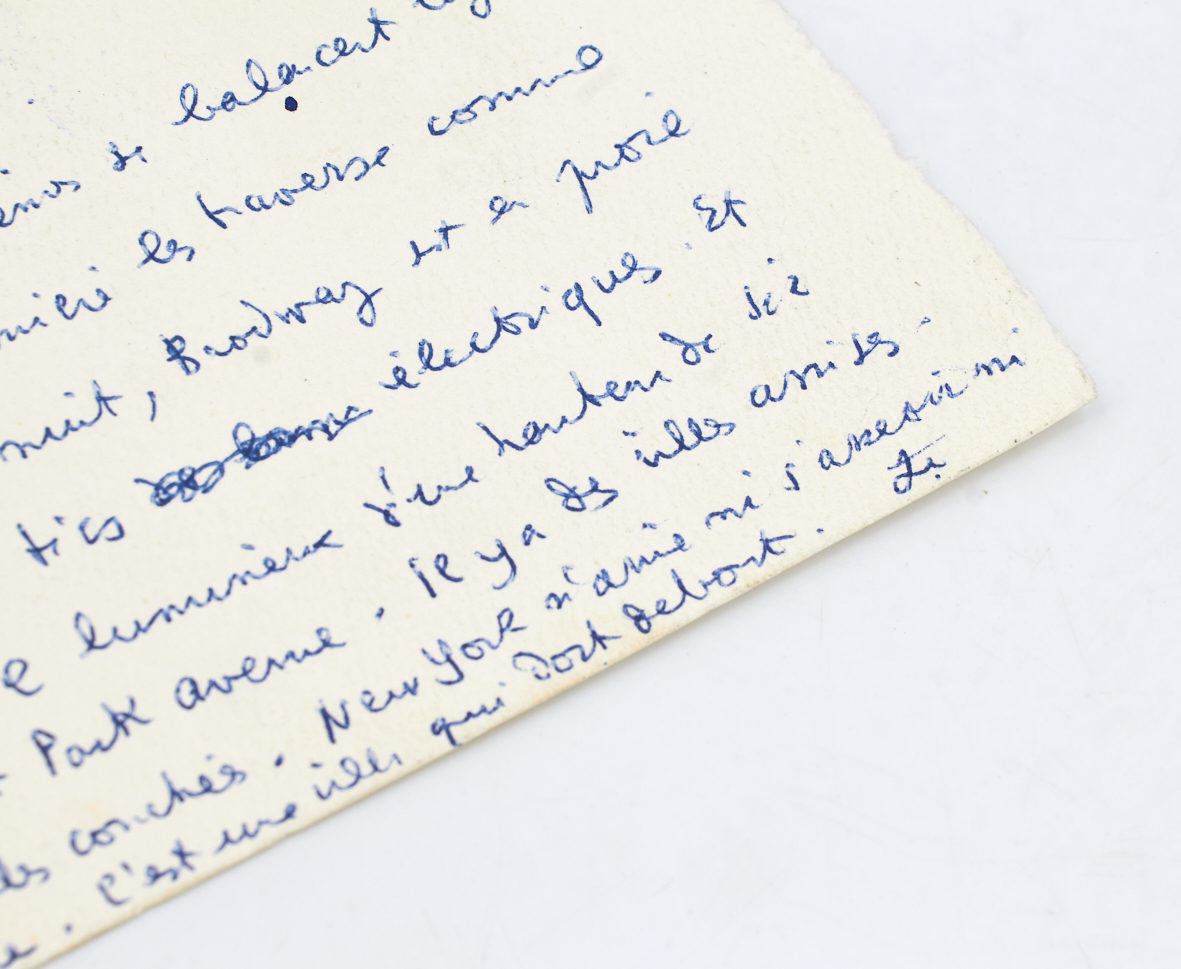 se balancent
les traverse comme
nuit, Brodway est en proie
tics électriques. Et
lumineux d'une hauteur de six
Park avenue. Il y a des villes assises.
couchés. New York n'aime ni s'asseoir ni
C'est une ville qui dort debout. Je